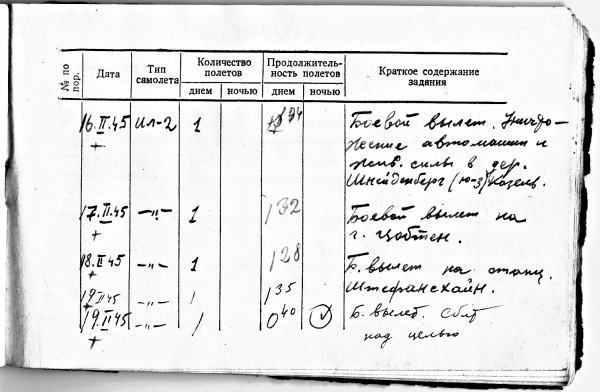 № по пор. Дата Тип самолета Количество полетов Продолжительность полетов Краткое содержание задания
днем ночью днем ночью
16.II.45 Ил-2 1 1 34 Боевой вылет. Уничто-
+ жение автомашин и
жив. силы в дер.
Шнейденберг (ю-з)
17.II.45 -"- 1 1 32 Боевой вылет на
+ г. Цобтен.
18.II.45 -"- 1 1 28 Б. вылет на станц.
+ Штефансхайн.
19.II.45 -"- 1 1 35
19.II.45 -"- 1 0 40 ✓ Б. вылет. Сбит
+ над целью